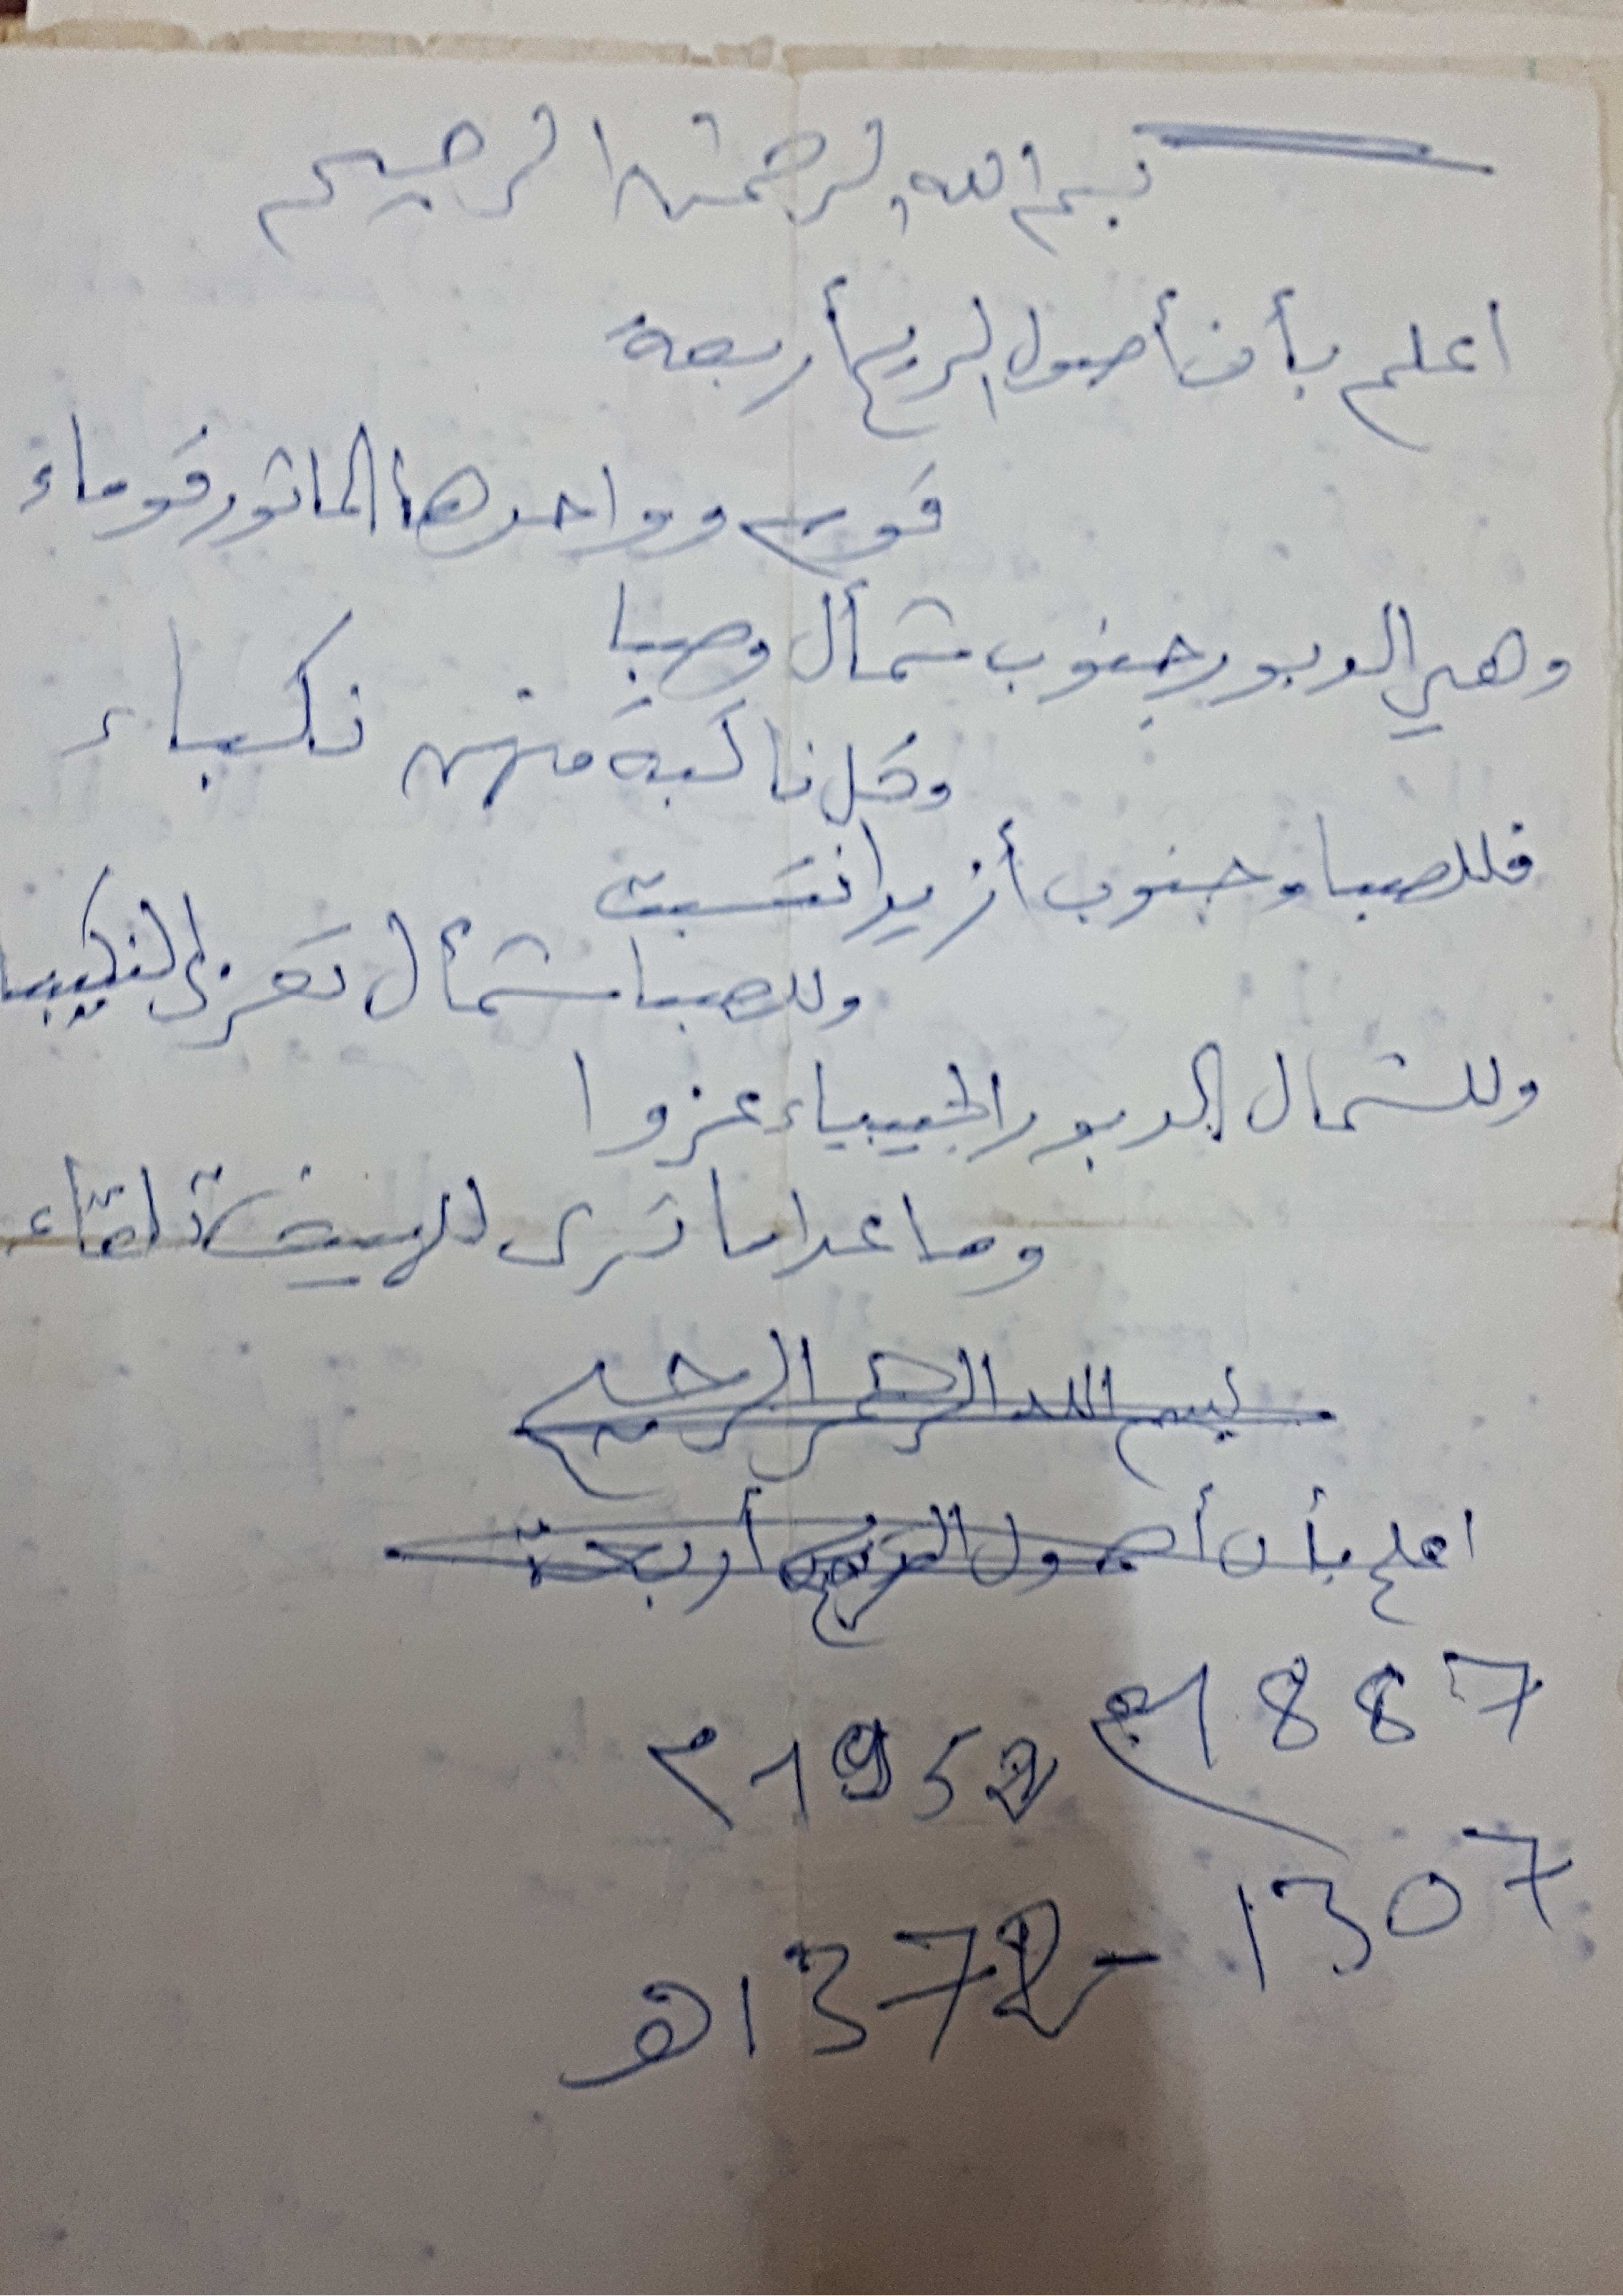 بسم الله الرحمن الرحيم
اعلم بأن أصول الريح أربعة
قوم وواحدها الماثور قوماء
وهي الدبور جنوب شمأل وصبا
وكل ناكبة منهن نكباء
فللصبا وجنوب أزيب انتسبت
وللصبا شمأل تعزى النكيبا
وللشمال الدبور الجيبياء عزوا
وما عدا ما ترى للهيف تلقاء
بسم الله الرحمن الرحيم
اعلم بأن أصول الريح أربعة
1887
1952 م
1307
- 1372 هـ